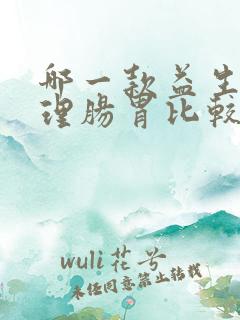 哪一款益生
理腸胃比較
wuli花兮
未经同意禁止转载